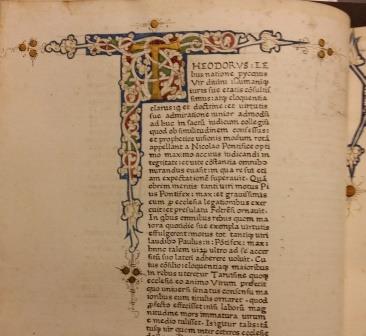 THEODORVS: LE
lius natione
Vir diuini & humaniq
iuris suę etatis cōsultis
simus: atq eloquentia
clarus: q̄ et doctrine: et uirtutis
suę admiratione iunior admodū
ad huc in sacrū iudicum collegiū
quod ob similitudinem confessus:
et propheticę visionis modum rota
appellant a Nicolao Pontifice opti
mo maximo accitus iudicandi in
tegritate: et uitę cōstantia omnibo
nurandus euasit: in qua re sui et
iam expectationē superauit. Qua
obrem meritis tanti uiri motus Pi
us Pontifex: max: et grauissimas
cum p ecclesia legationibus exer
cuit: et presulatu Feltrēsi ornauit.
In qbus omnibus rebus quom ma
iora quotidie suę exempla virtutis
effulgerent: motus tot tantisq uiri
laudibo Paulus: ii: Pōtifex: max:
hunc talem uirū ultro ad se acer
suū lateri adherere uoluit. Cu
ius cōsilio: eloquentiaq maioribus
in rebus uteretur Taruisine quoq
ecclesię eo animo Virum prefecit
quo uniuersi senatus consensu ma
ioribus cum titulis ornaret. quod
pfecto effecisset nisi laborū mag
nitudine mors immatura uirum
e medio tulisset. Igitur talis tā
tusq uir quom inter ceteros ecclesie